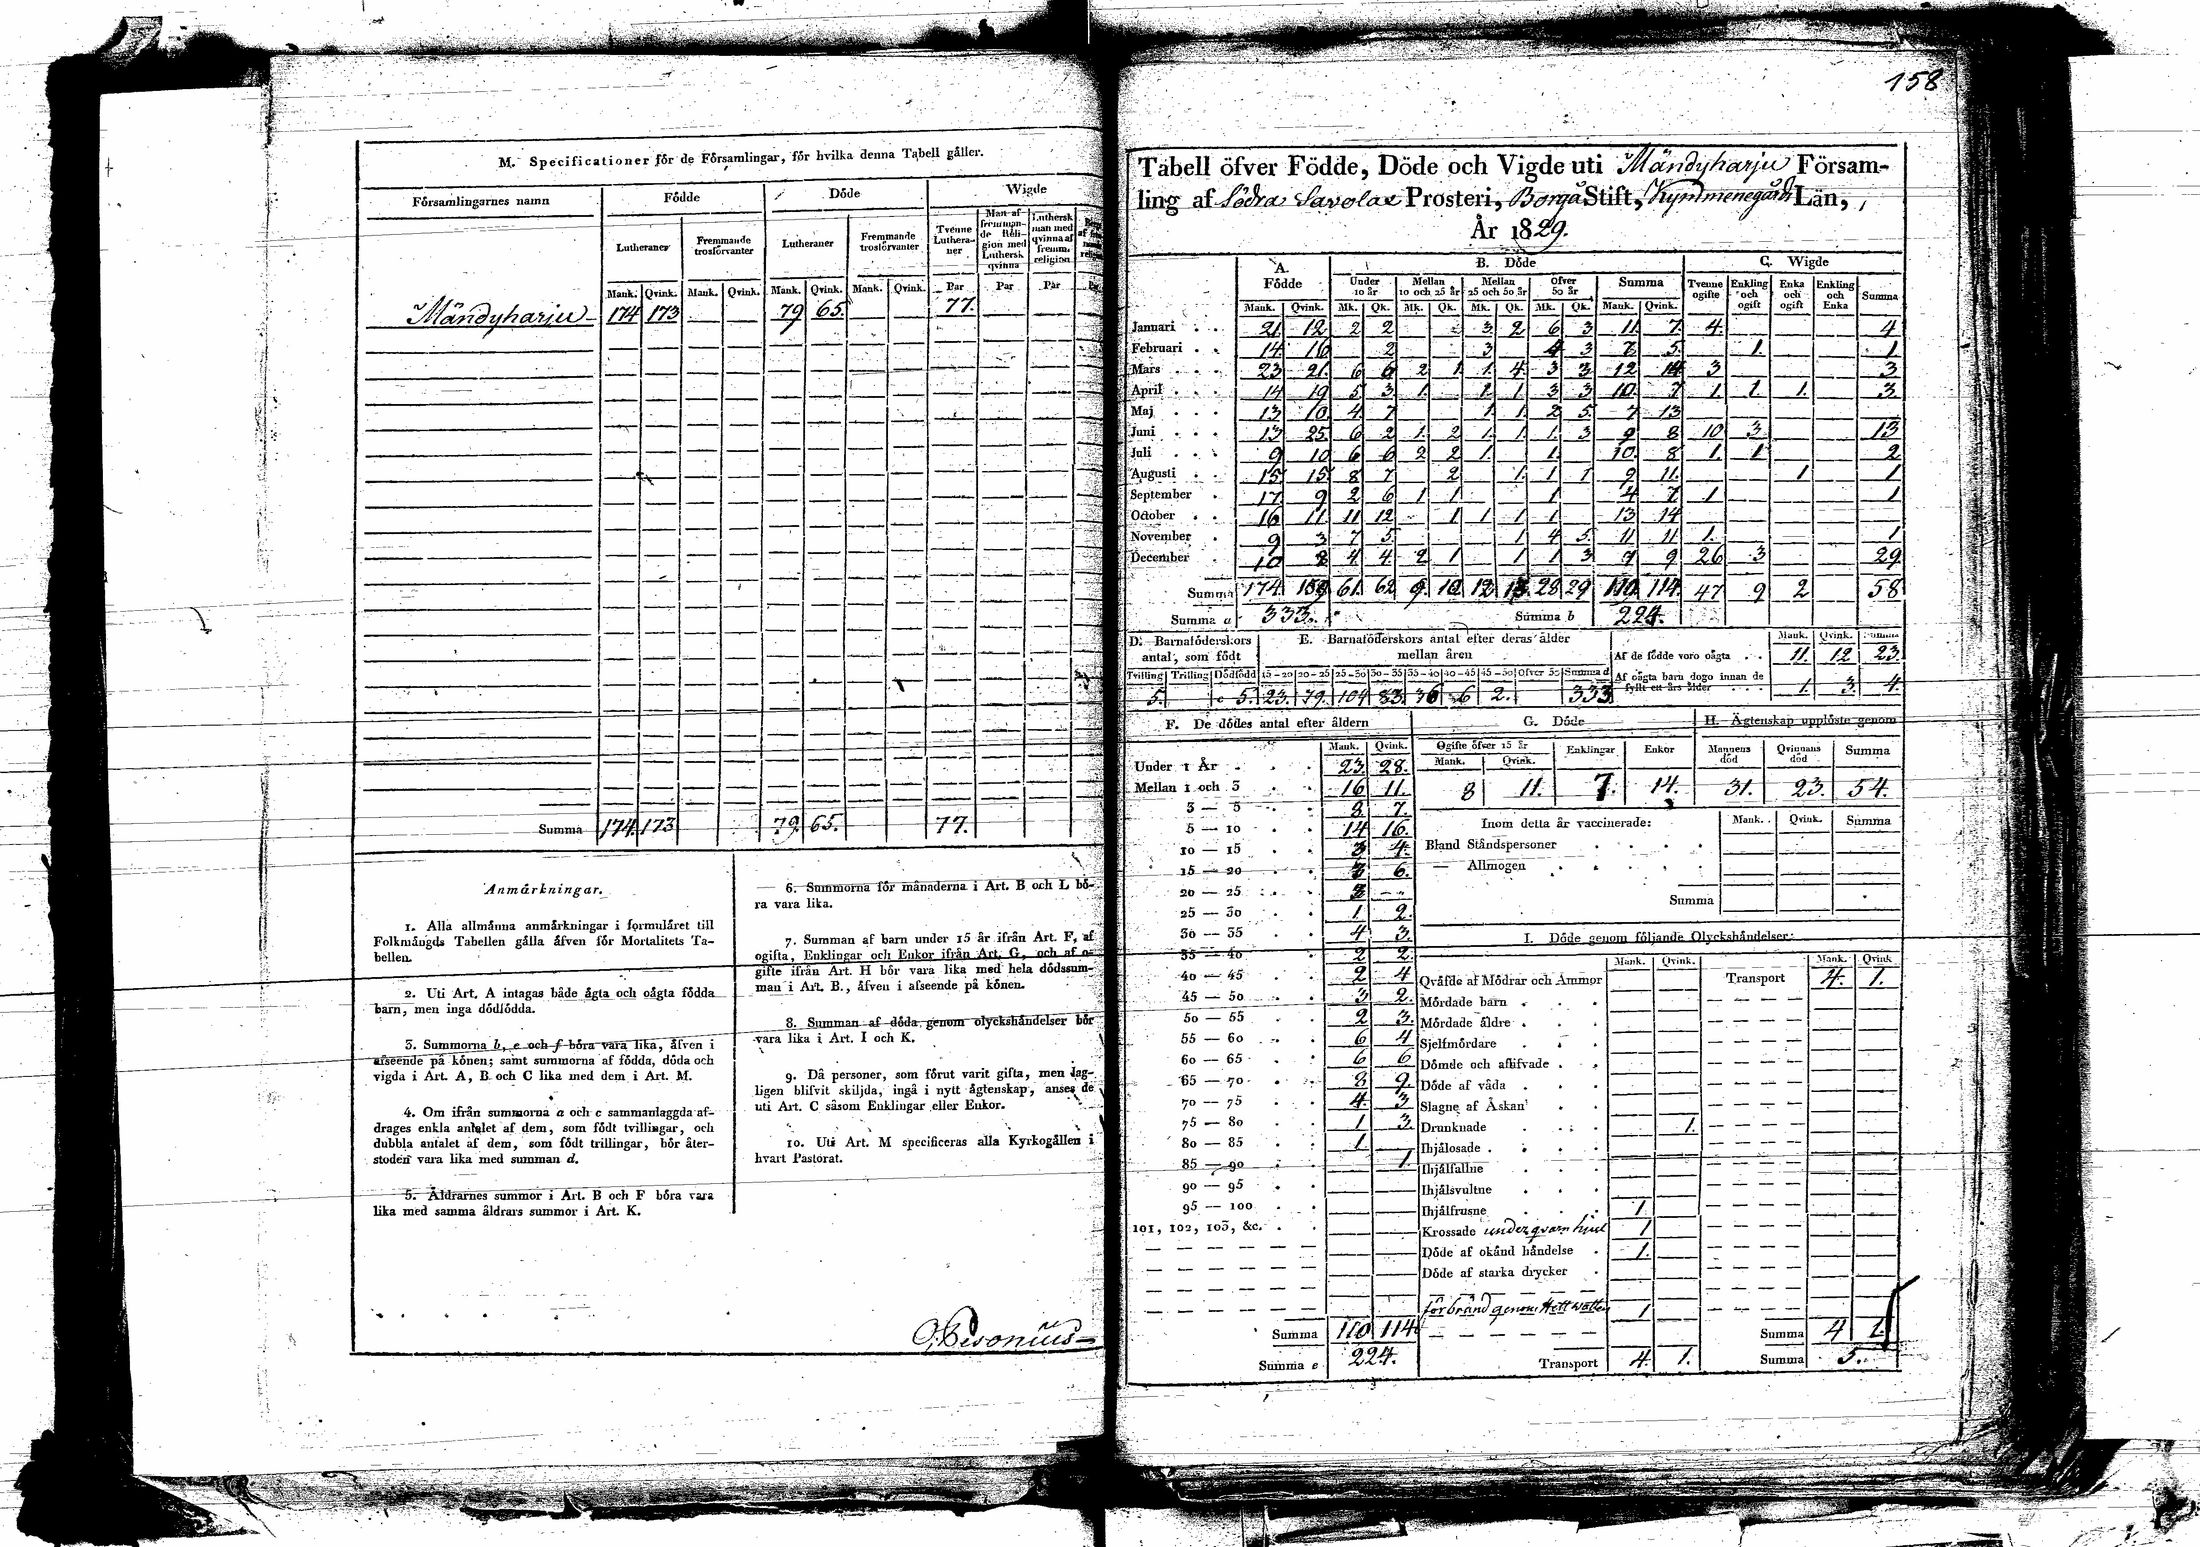 M. Specificationer för de Församlingar, för hvilka denna Tabell gäller.
Församlingarnes namn Födde Döde Wigde
Lutheraner Fremmande trosförvanter Lutheraner Fremmande trosförvanter Tvenne Lutheraner Man af fremmande Religion med Luthersk qvinna Luthersk man med qvinna af fremm. religion
Mank. Qvink. Mank. Qvink. Mank. Qvink. Mank. Qvink. Par Par Par
Mändyharju 174 173 79 65. 77.
Summa 174. 173 79. 65. 77.
Anmärkningar.
1. Alla allmänna anmärkningar i formuläret till
Folkmängds Tabellen gälla äfven för Mortalitets Ta-
bellen.
2. Uti Art. A intagas både ägta och oägta födda
barn, men inga dödfödda.
3. Summorna b, e och f böra vara lika, äfven i
afseende på könen; samt summorna af födda, döda och
vigda i Art. A, B och C lika med dem i Art. M.
4. Om ifrån summorna a och c sammanlaggda af-
drages enkla antalet af dem, som födt tvillingar, och
dubbla antalet af dem, som födt trillingar, bör åter-
stoden vara lika med summan d.
5. Åldrarnes summor i Art. B och F böra vara
lika med samma åldrars summor i Art. K.
6. Summorna för månaderna i Art. B och L bö-
ra vara lika.
7. Summan af barn under 15 år ifrån Art. F, af
ogifta, Enklingar och Enkor ifrån Art. G, och af o-
gifte ifrån Art. H bör vara lika med hela dödssum-
man i Art. B., äfven i afseende på könen.
8. Summan af döda genom olyckshändelser bör
vara lika i Art. I och K.
9. Då personer, som förut varit gifta, men lag-
ligen blifvit skiljda, ingå i nytt ägtenskap, anses de
uti Art. C såsom Enklingar eller Enkor.
10. Uti Art. M specificeras alla Kyrkogällen i
hvart Pastorat.
158
Tabell öfver Födde, Döde och Vigde uti Mändyharju Försam-
ling af Södra Savolax Prosteri, Borgå Stift, Kymmenegårds Län,
År 1829.
A. Födde B. Döde C. Wigde
Under 10 år Mellan 10 och 25 år Mellan 25 och 50 år Öfver 50 år Summa Tvenne ogifte Enkling och ogift Enka och ogift Enkling och Enka Summa
Mank. Qvink. Mk. Qk. Mk. Qk. Mk. Qk. Mk. Qk. Mank. Qvink.
Januari 21. 12 2 2 3. 2 6 3 11 7. 4. 4
Februari 14. 16 2 3 4 3 7. 5. 1. 1.
Mars 23 21. 6 6 2 1. 1. 4. 3 3 12 14 3 3
April 14 19 5 3 1. 1. 1 3 3 10. 7 1. 1. 1. 3
Maj 13 10 4 7 1. 1. 2 5. 7 13
Juni 13 25. 6 2 1. 2 1. 1. 1. 3 9 8 10 3. 13
Juli 9 10 6 6 2 2 1 1. 10. 8 1. 1 2
Augusti 15 15. 8 7 2 1. 1 1 9 11. 1 1
September 17 9 2 6 1 1 1 4 7. 1 1
October 16 11. 11 12 1 1 1 1 13 14
November 9 3 7 5 1 4 5. 11 11 1. 1
December 10 8 4 4. 2 1 1 1 3 9 9 26 3 29
Summa 174 159 61. 62 9. 10 12 13. 28 29 110 114. 47 9 2 58
Summa a 333. Summa b 224.
D. Barnaföderskors antal, som födt
E. Barnaföderskors antal efter deras ålder mellan åren
Tvilling Trilling Dödfödd 15-20 20-25 25-30 30-35 35-40 40-45 45-50 Öfver 50 Summa d
5. c 5. 23. 79. 104 83. 36 6 2. 333
Mank. Qvink. Summa
Af de födde voro oägta 11. 12 23.
Af oägta barn dogo innan de fyllt ett års ålder 1. 3. 4.
F. De dödes antal efter åldern
Mank. Qvink.
Under 1 År 23. 28.
Mellan 1 och 3 16 11.
3 — 5 8. 7.
5 — 10 14 16.
10 — 15 3 4.
15 — 20 3 6.
20 — 25 3
25 — 30 1. 2.
30 — 35 4 3.
35 — 40 2 2.
40 — 45 2 4
45 — 50 3 2.
50 — 55 2 3.
55 — 60 6 4
60 — 65 6 6
65 — 70 8 9.
70 — 75 4. 3
75 — 80 1 3.
80 — 85 1.
85 — 90 1.
90 — 95
95 — 100
101, 102, 103, &c.
Summa 110 114
Summa e 224.
G. Döde
Ogifte öfver 15 år Enklingar Enkor
Mank. Qvink.
8 11. 7. 14.
H. Ägtenskap upplöste genom
Mannens död Qvinnans död Summa
31. 23. 54.
Inom detta år vaccinerade: Mank. Qvink. Summa
Bland Ståndspersoner
— Allmogen
Summa
I. Döde genom följande Olyckshändelser:
Mank. Qvink. Mank. Qvink
Qväfde af Mödrar och Ammor Transport 4. 1.
Mördade barn
Mördade äldre
Sjelfmördare
Dömde och aflifvade
Döde af våda
Slagne af Åskan
Drunknade 1.
Ihjälosade
Ihjälfallne
Ihjälsvultne
Ihjälfrusne 1
Krossade under qvarn hjul 1
Döde af okänd händelse 1.
Döde af starka drycker
förbränd genom Hett watten 1
Summa 4 1
Transport 4. 1. Summa 5.